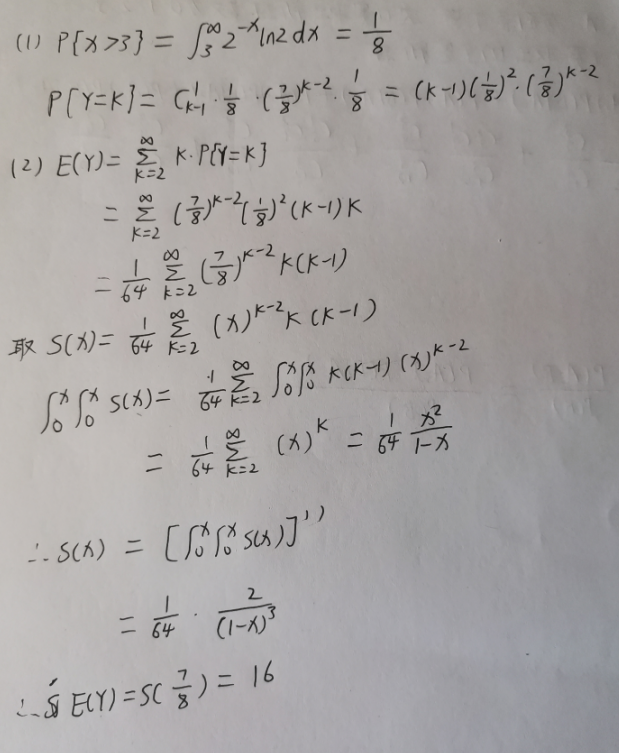 (1) P{X>3} = ∫₃^∞ 2^(-x) ln2 dx = 1/8
P{Y=K} = C¹ₖ₋₁ · 1/8 · (7/8)^(K-2) · 1/8 = (K-1)(1/8)² · (7/8)^(K-2)
(2) E(Y) = ∑_(K=2)^∞ K·P{Y=K}
= ∑_(K=2)^∞ (7/8)^(K-2) (1/8)² (K-1)K
= 1/64 ∑_(K=2)^∞ (7/8)^(K-2) K(K-1)
取 S(x) = 1/64 ∑_(K=2)^∞ (x)^(K-2) K(K-1)
∫₀^x ∫₀^x S(x) = 1/64 ∑_(K=2)^∞ ∫₀^x ∫₀^x K(K-1) (x)^(K-2)
= 1/64 ∑_(K=2)^∞ (x)^K = 1/64 x²/(1-x)
∴ S(x) = [∫₀^x ∫₀^x S(x)]''
= 1/64 · 2/(1-x)³
∴ E(Y) = S(7/8) = 16